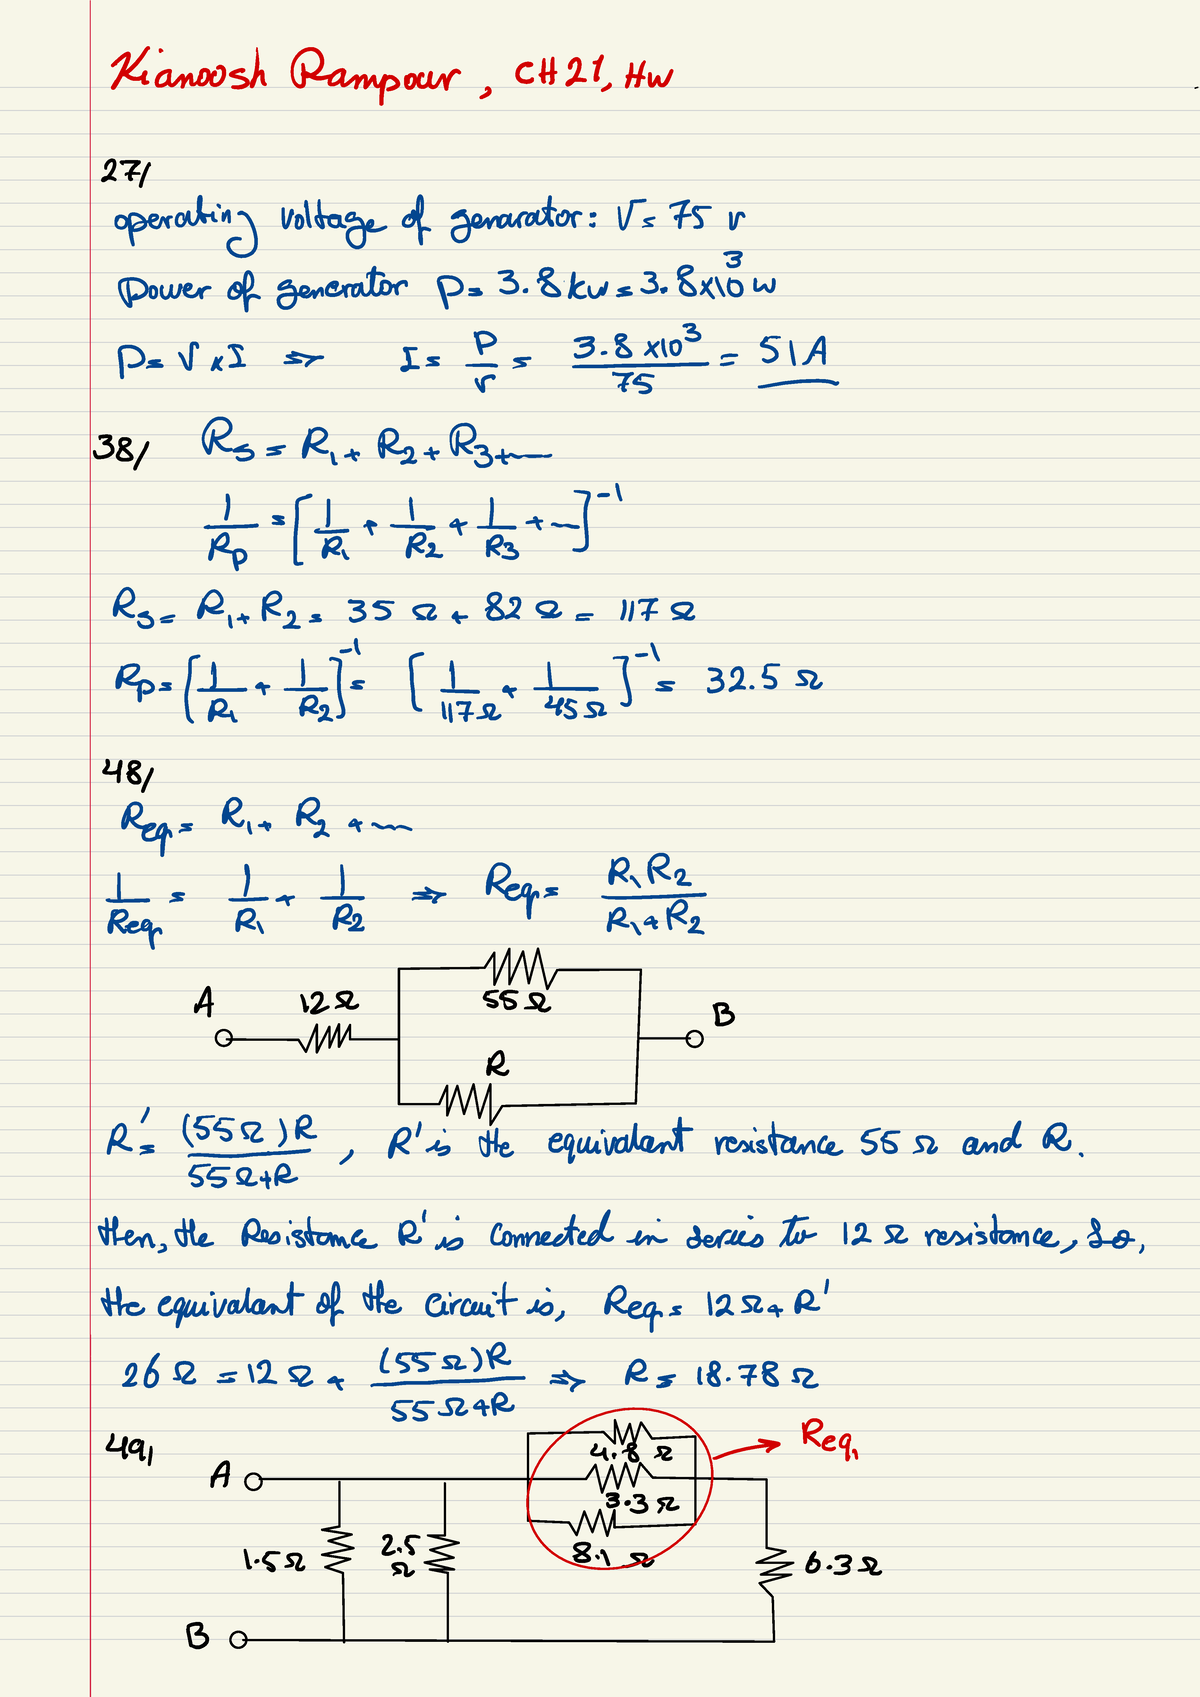 Kianoosh Rampour, CH21, HW
27/
operating voltage of genarator: V = 75 v
Power of generator P = 3.8 kw = 3.8×10³ w
P = V × I ⇒ I = P/V = 3.8 ×10³/75 = 51A
38/ Rs = R₁ + R₂ + R₃ + ...
1/Rp = [1/R₁ + 1/R₂ + 1/R₃ + ...]⁻¹
Rs = R₁ + R₂ = 35 Ω + 82 Ω = 117 Ω
Rp = [1/R₁ + 1/R₂]⁻¹ = [1/117Ω + 1/45Ω]⁻¹ = 32.5 Ω
48/
Req = R₁ + R₂ + ...
1/Req = 1/R₁ + 1/R₂ ⇒ Req = R₁R₂/R₁+R₂
55 Ω
A 12 Ω B
R
R' = (55Ω)R/55Ω+R , R' is the equivalant resistance 55 Ω and R.
then, the Resistance R' is Connected in series to 12 Ω resistance, So,
the equivalant of the Circuit is, Req = 12Ω + R'
26 Ω = 12 Ω + (55 Ω)R/55Ω+R ⇒ R = 18.78 Ω
49/
4.8 Ω Req₁
A
3.3 Ω
8.1 Ω
1.5Ω 2.5 Ω 6.3 Ω
B